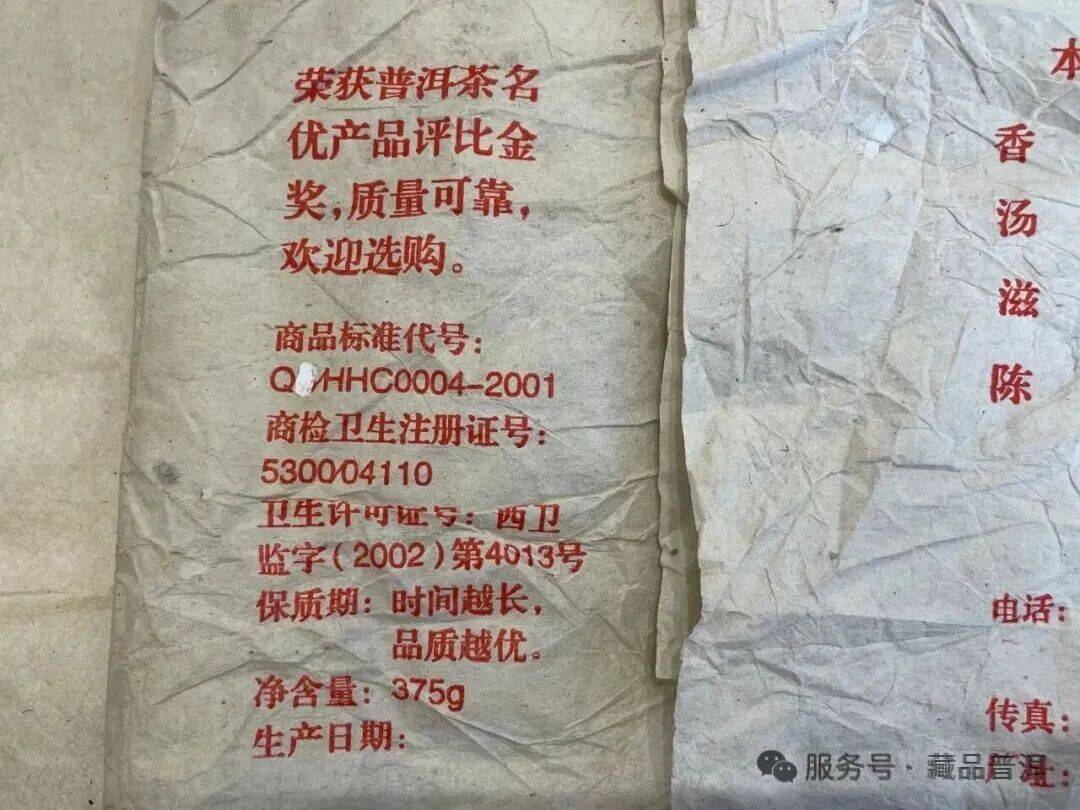 荣获普洱茶名
优产品评比金
奖,质量可靠,
欢迎选购。
商品标准代号:
Q/HHC0004-2001
商检卫生注册证号:
5300/04110
卫生许可证号:西卫
监字(2002)第4013号
保质期:时间越长,
品质越优。
净含量:375g
生产日期:
本
香
汤
滋
陈
电话:
传真:
厂址:
服务号·藏品普洱